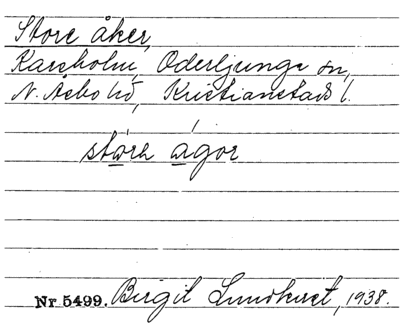 Store åker,
Karsholm, Oderljunga sn,
N. Åsbo hd, Kristianstads l.
störa ágor
Nr 5499. Birgit Lundkvist, 1938.